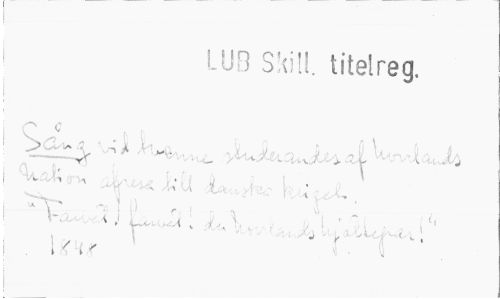 LUB Skill. titelreg.
Sång vid tvenne studerandes af Norrlands
Nation afresa till danska kriget.
"Farväl! farväl! du Norrlands hjältepar!"
1848